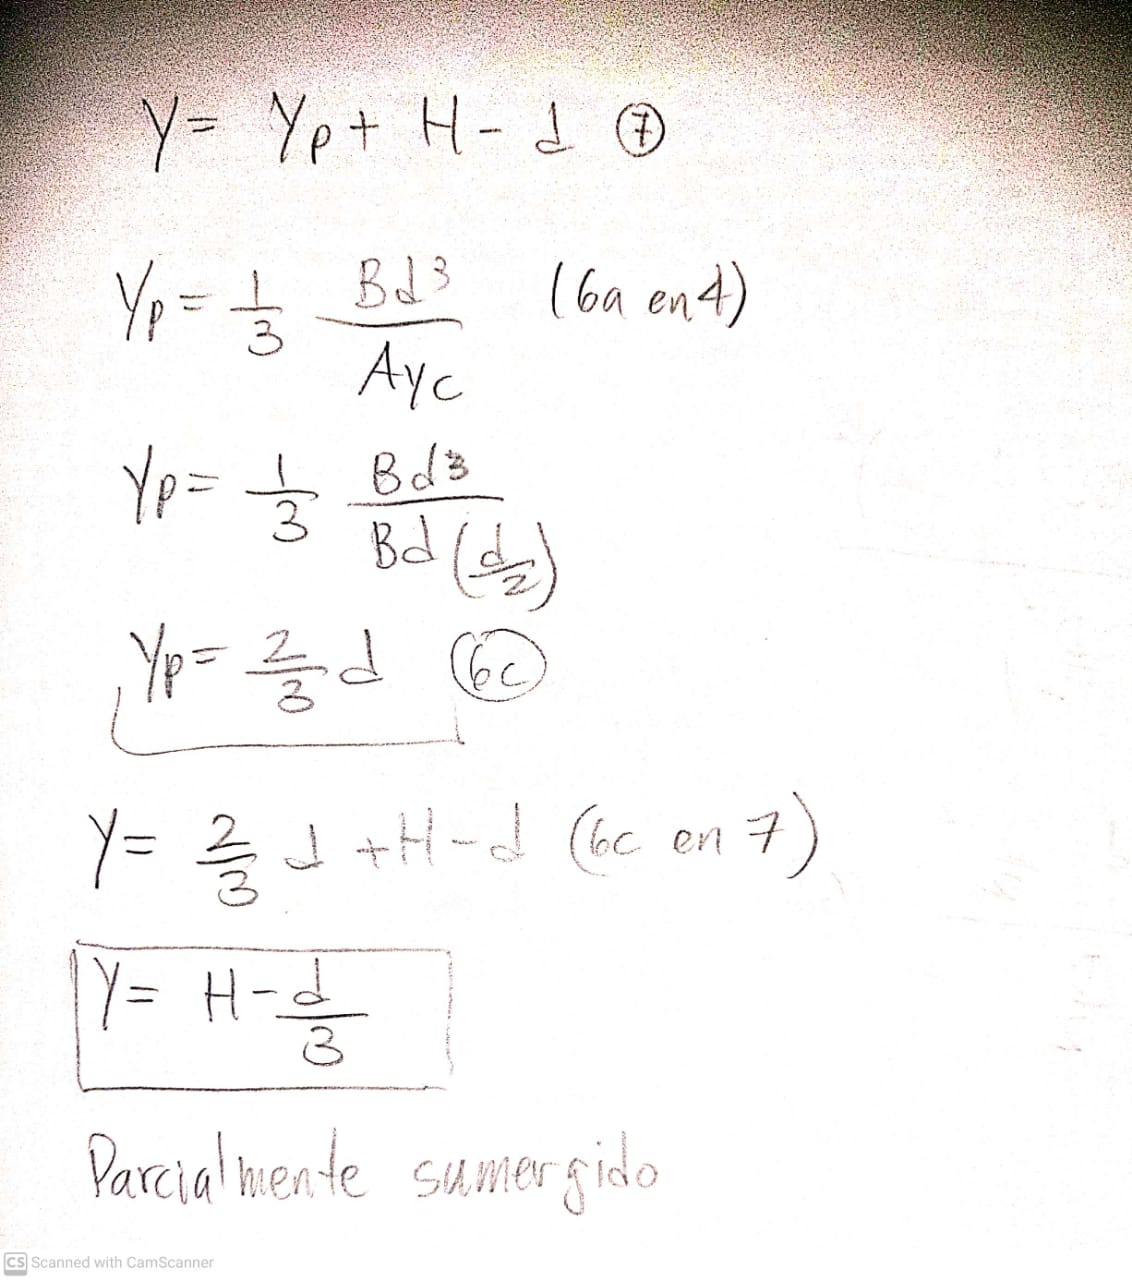 Y = Yp + H - d ⑦
Yp = 1/3 Bd3/Ayc (6a en 4)
Yp = 1/3 Bd3/Bd(d/2)
Yp = 2/3 d (6c)
Y = 2/3 d + H - d (6c en 7)
Y = H - d/3
Parcialmente sumergido
CS Scanned with CamScanner